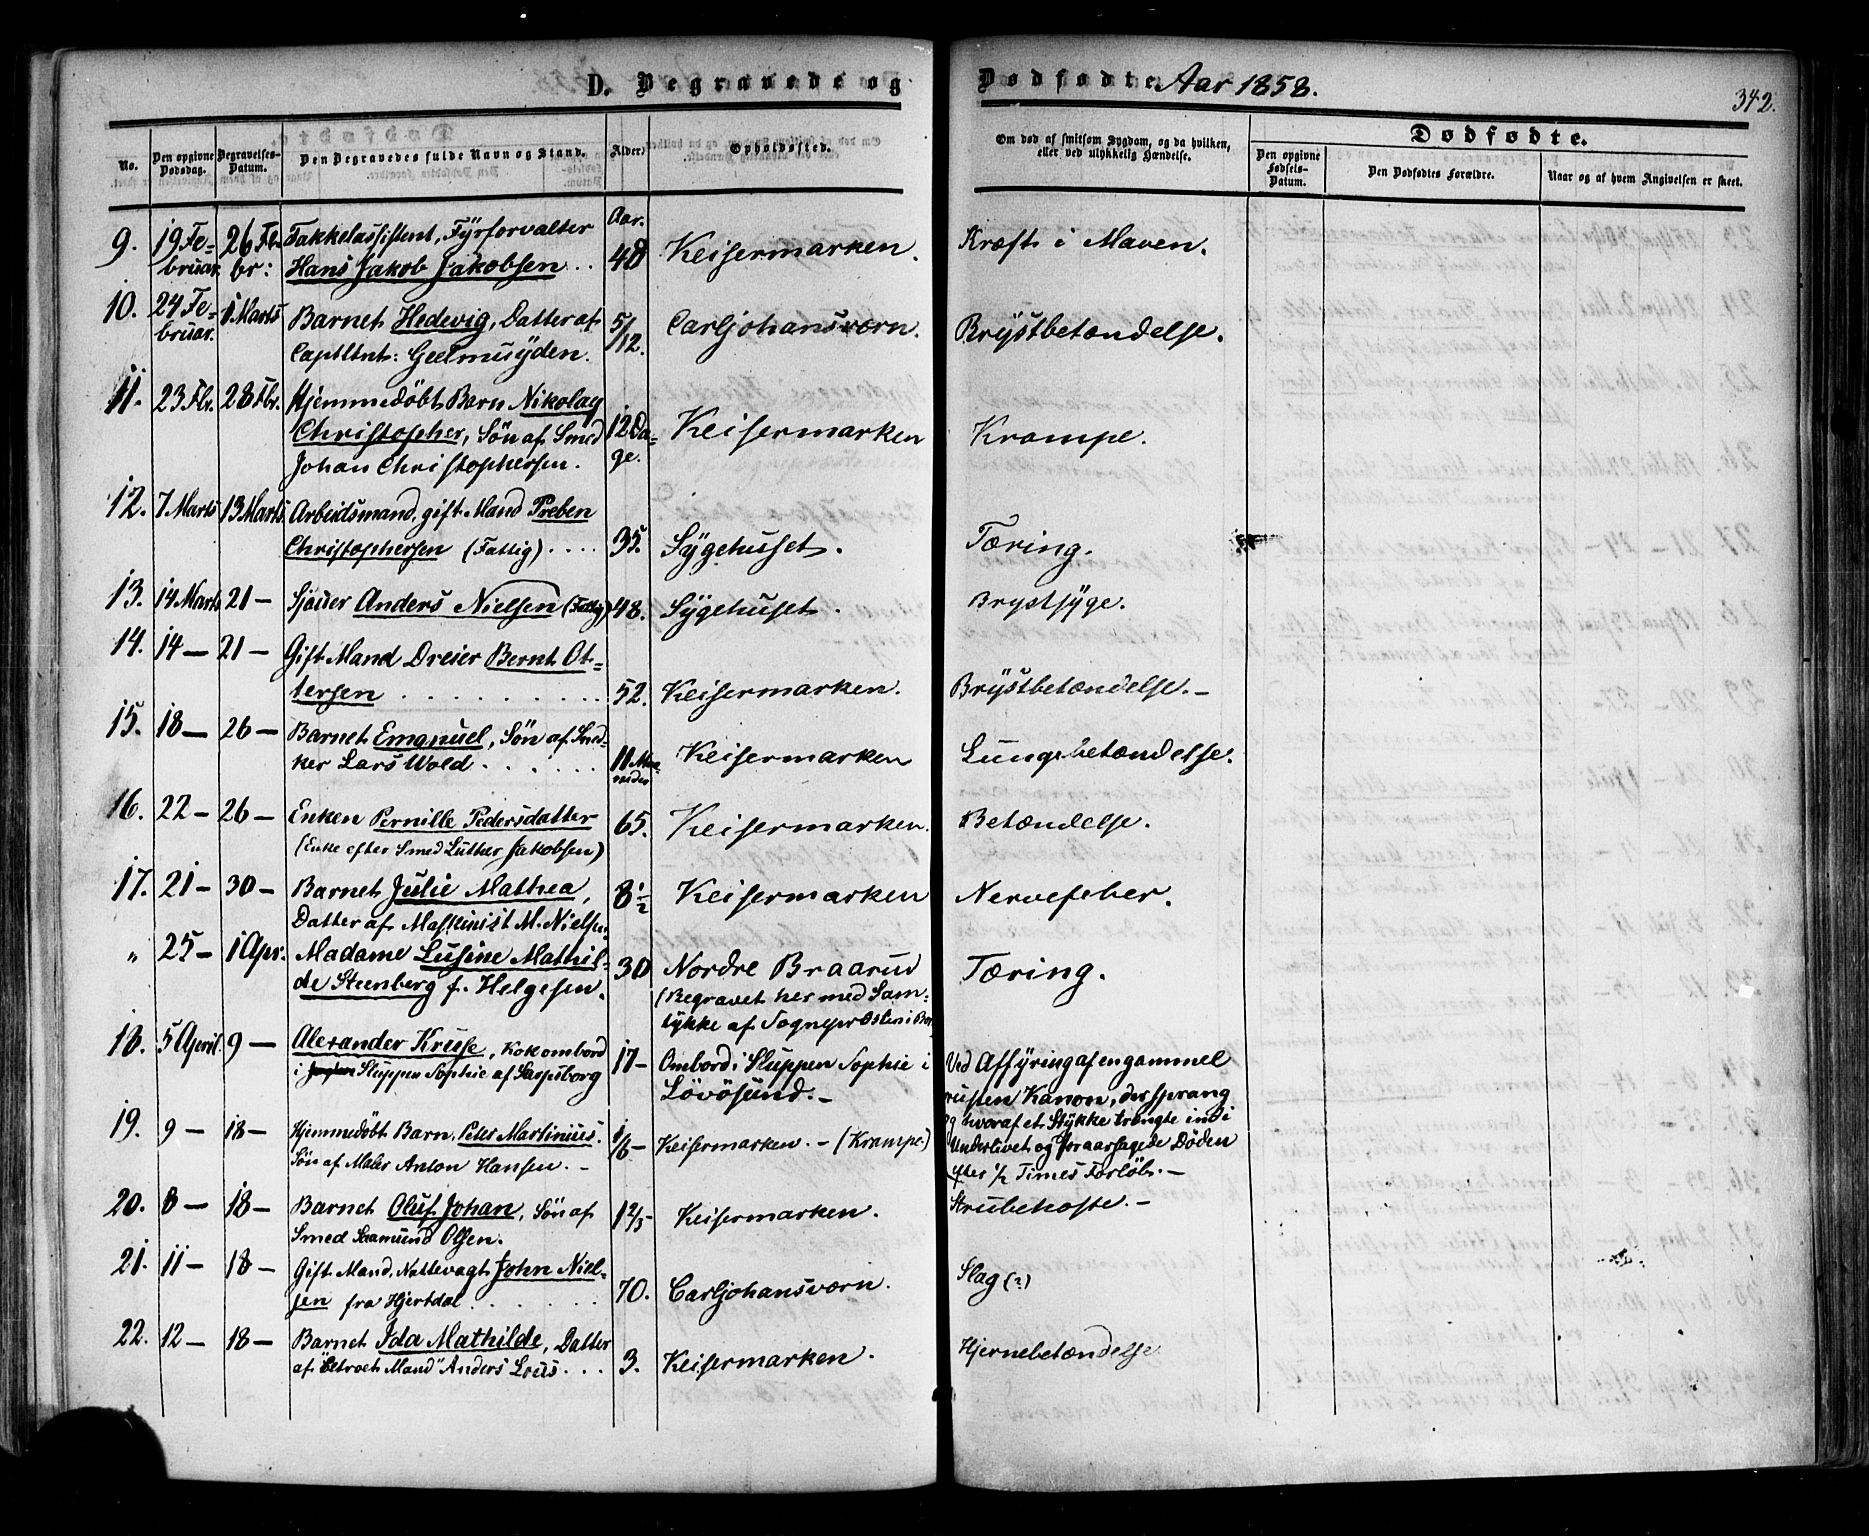 D. Begravede og Dødfødte. Aar 1858.
342.
No.
Den opgivne Dødsdag.
Begravelses-Datum.
Den Begravedes fulde Navn og Stand.
Alder.
Opholdssted.
Om død af smitsom Sygdom, og da hvilken,
eller ved ulykkelig Hændelse.
Dødfødte.
Den opgivne Fødsels-Datum.
Den Dødfødtes Forældre.
Naar og af hvem Angivelsen er skeet.
Aar.
9. 19 Fe- 26 Fe- Takkelassistent, Fÿrforvalter
bruar. br: Hans Jakob Jakobsen .. 48 Keisermarken. Kræft i Maven.
10. 24 Fe- 1 Marts Barnet Hedevig, Datter af 5/12. Carljohansværn. Brÿstbetændelse.
bruar. Captltnt: Geelmuÿden.
11. 23 Fbr. 28 Fbr. Hjemmedöbt Barn Nikolay
Christopher, Sön af Smed 12 Da- Keisermarken Krampe.
Johan Christophersen. ge.
12. 7 Marts 13 Marts Arbeidsmand, gift Mand Preben
Christophersen (Fattig) .... 35. Sÿgehusset. Tæring.
13. 14 Marts 21 — Sjouer Anders Nielsen (Fattig) 48. Sÿgehuset. Brystsÿge.
14. 14 — 21 — Gift Mand Dreier Bernt Ot-
tersen . . . . . . . 52. Keisermarken. Brÿstbetændelse. —
15. 18 — 26 — Barnet Emanuel, Sön af Sned-
ker Lars Wold . . . . . 11 Maa- Keisermarken Lungebetændelse.
neder
16. 22 — 26 — Enken Pernille Pedersdatter 65. Keisermarken. Betændelse.
(Enke efter Smed Luther Jakobsen)
17. 21 — 30 — Barnet Julie Mathea, 8 1/2 Keisermarken Nervefeber.
Datter af Maskinist M. Nielsen.
" 25 — 1 Apr. Madame Lusine Mathil- 30 Nordre Braarud Tæring.
de Steenberg f. Helgesen. (Begravet her med Sam-
tÿkke af Sognepr Osten i Bor
18. 5 April. 9 — Alexander Kruse, Kok ombord 17 — Ombord i Sluppen Sophie i Ved Affÿring af en gammel
i Sluppen Sophie af Sarpsborg Lövösund. — rusten Kanon, der sprang
og hvoraf et Stÿkke trængte ind i
19. 9 — 18 — Hjemmedöbt Barn, Peter Martinius. 1/6 — Keisermarken. — (Krampe.) Underlivet og foraarsagede Döden
Sön af Maler Anton Hansen. — efter 1/2 Times Forlöb. —
20. 8 — 18 — Barnet Oluf Johan, Sön af 1 2/3 — Keisermarken. Strubehoste. —
Smed Saamund Olsen.
21. 11 — 18 — Gift Mand, Nattevagt John Niel-
sen fra Hjertdal . . . . . 70. Carljohansværn. Slag (?)
22. 12 — 18 — Barnet Ida Mathilde, Datter
af Mand" Anders Loeus . . . 3. Keisermarken. Hjernebetændelse